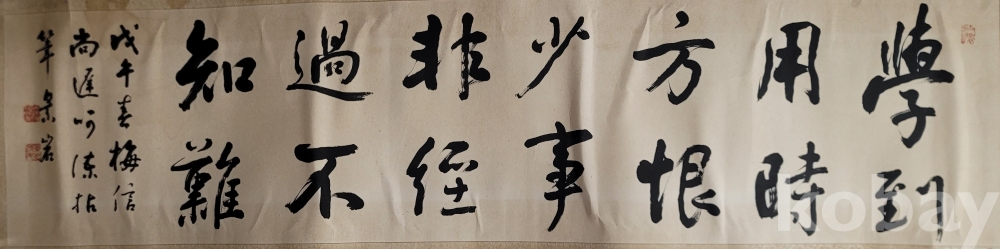 學到
用時
方恨
少事
非經
過不
知難
戊午春梅信
尚遲呵凍拈
筆 景岩
hobay